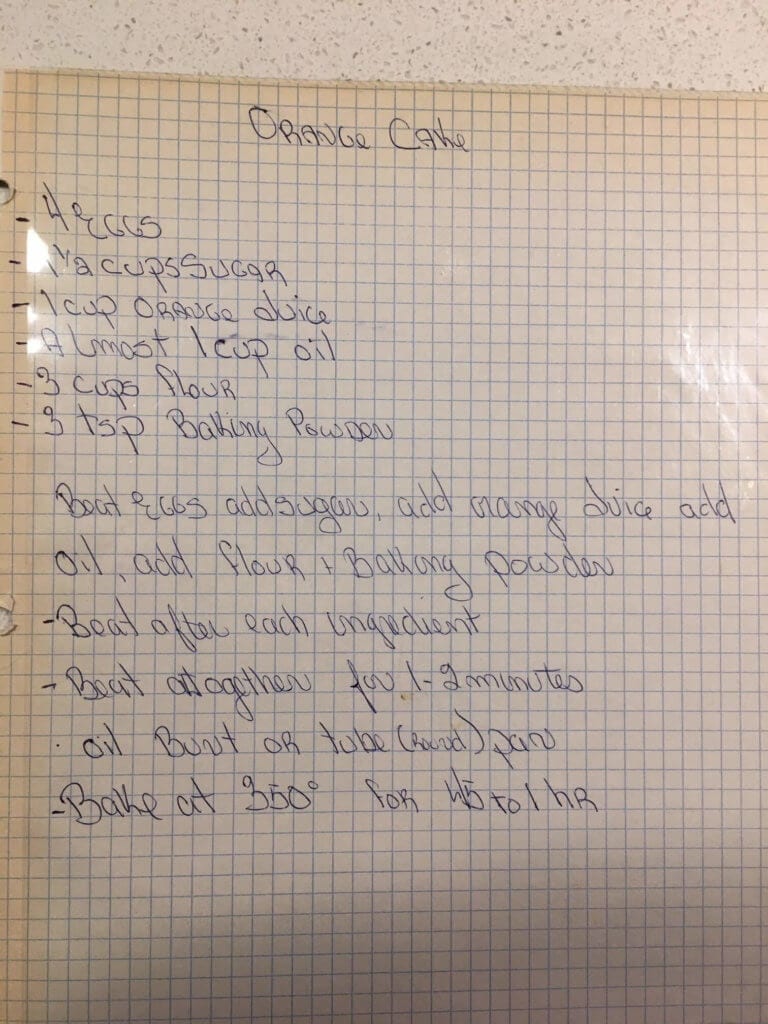 ORANGE CAKE
- 4 EGGS
- 1 1/2 cups SUGAR
- 1 cup ORANGE Juice
- Almost 1 cup oil
- 3 cups flour
- 3 tsp Baking Powder
Beat EGGS add sugar, add orange Juice add
oil, add flour + Baking powder
- Beat after each ingredient
- Beat altogether for 1-2 minutes
. oil Bunt or tube (Round) pan
- Bake at 350° for 45 to 1 hR